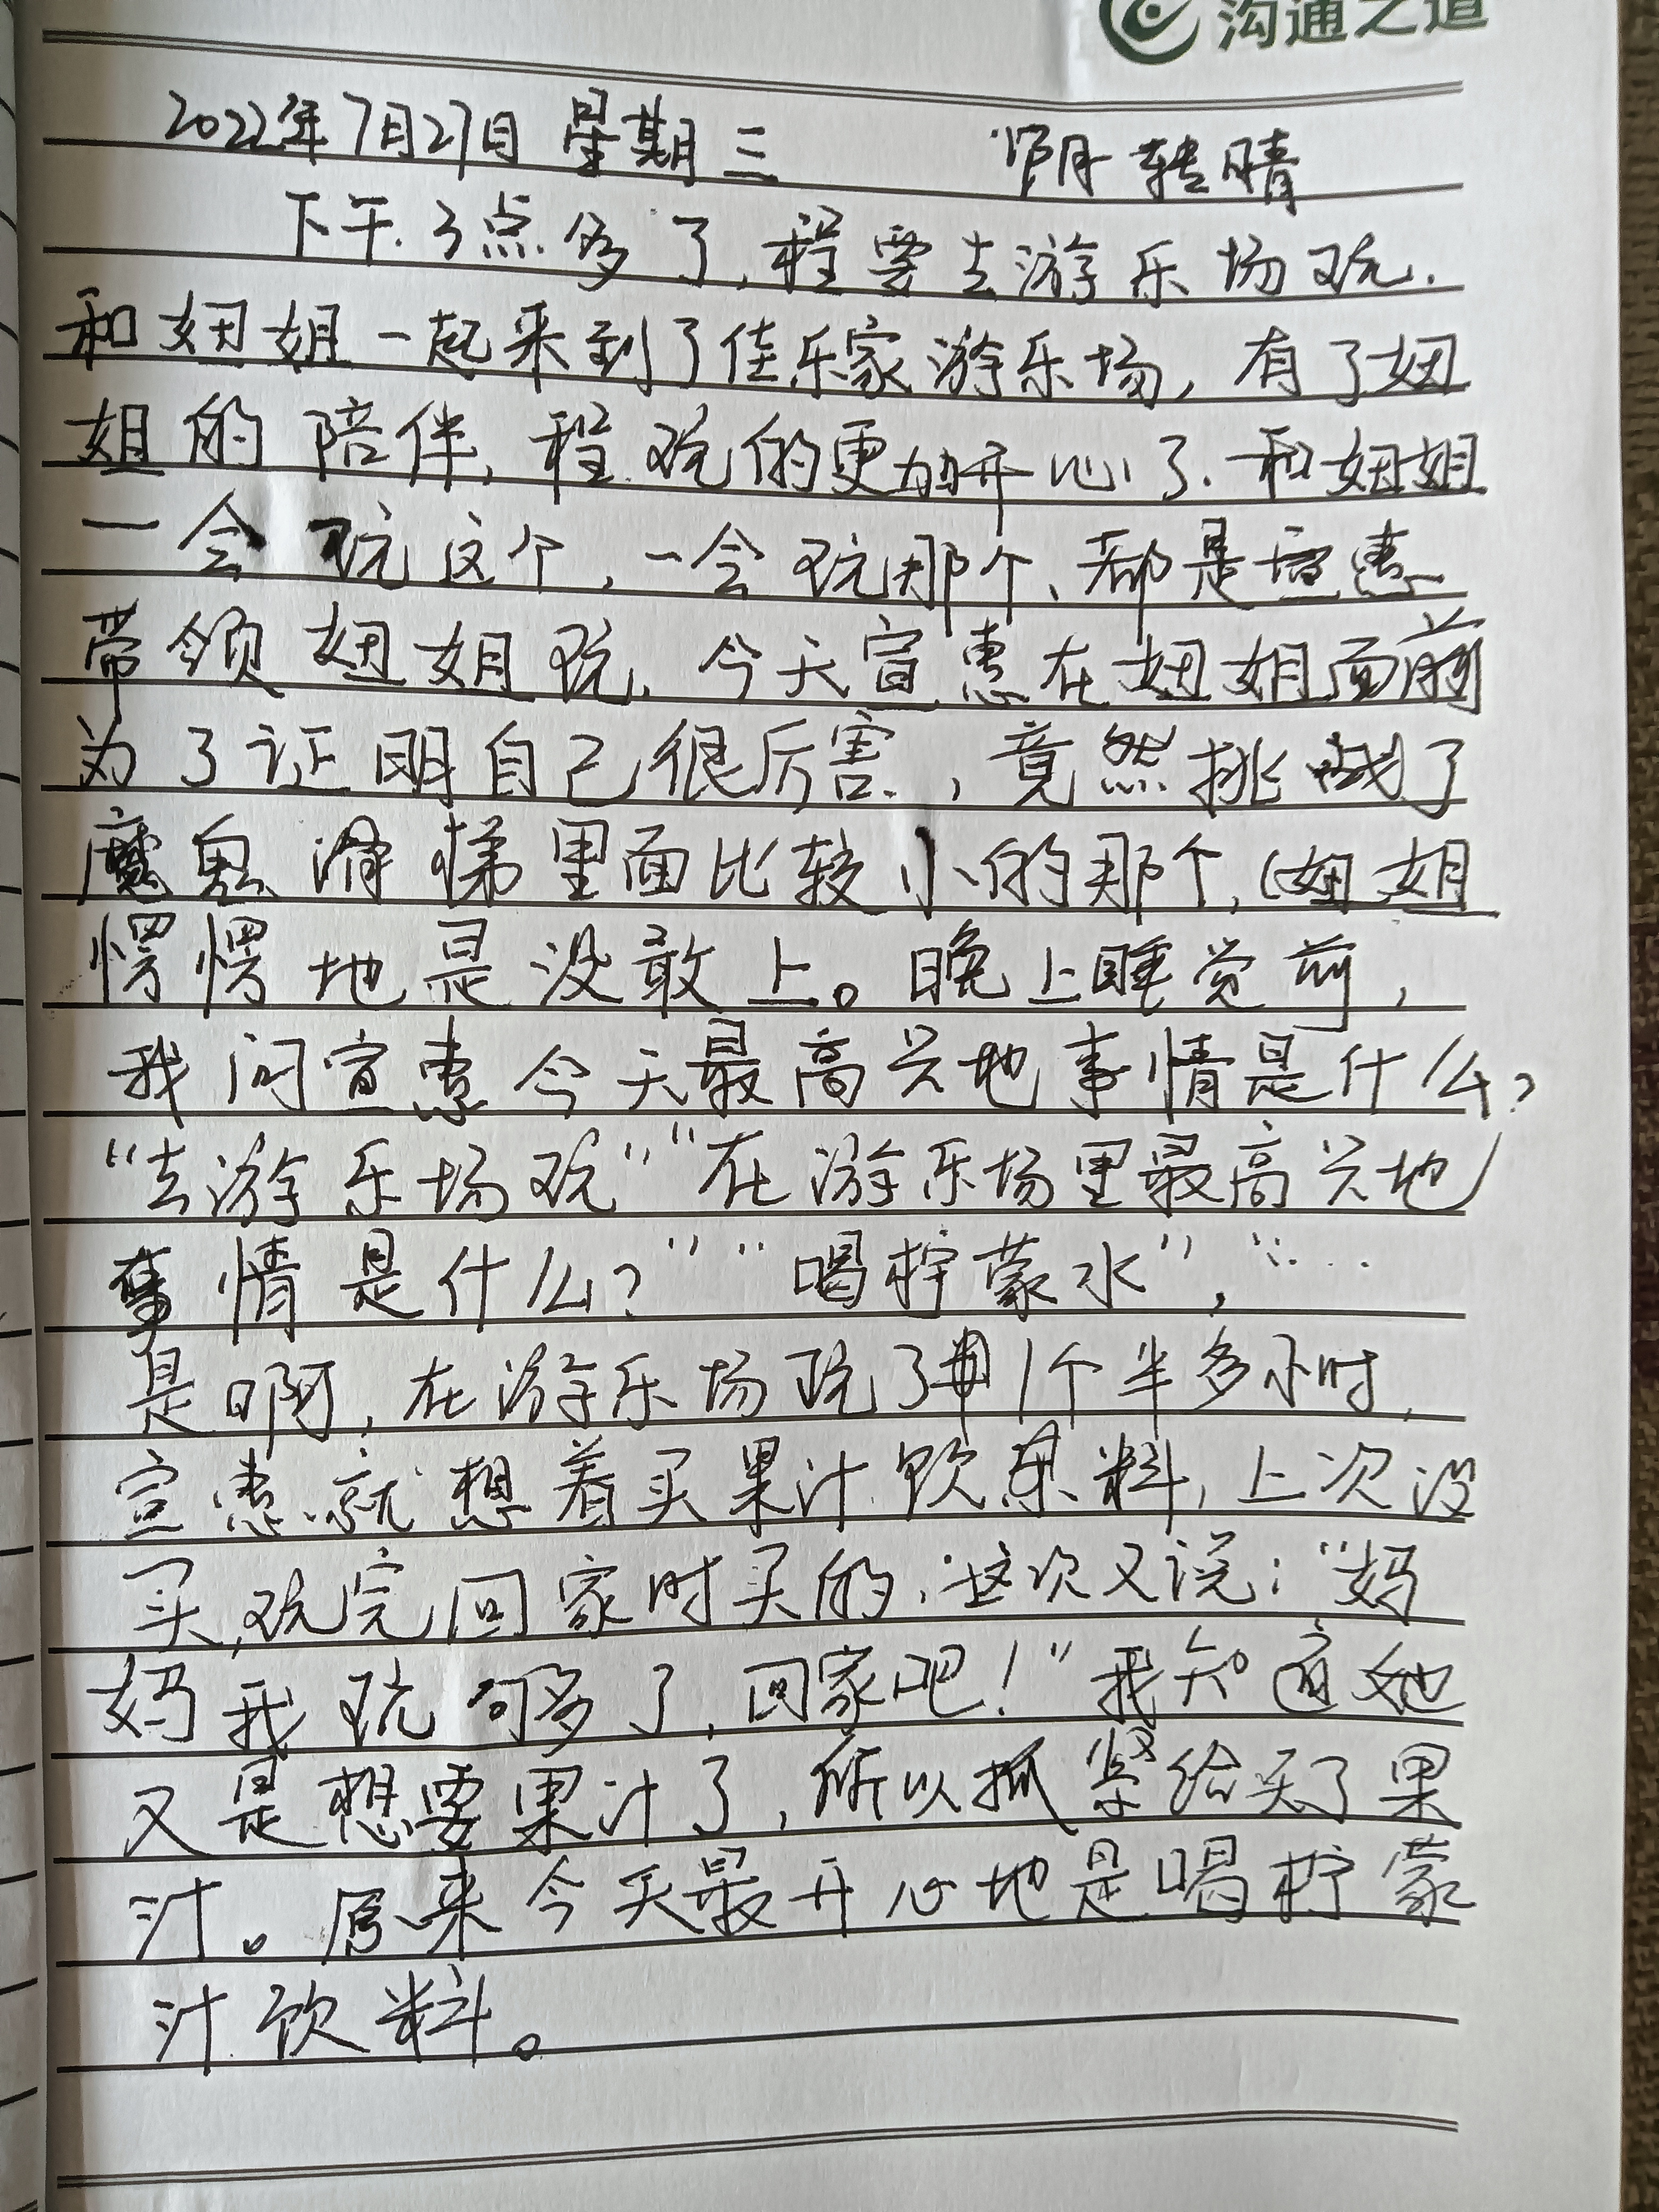 沟通之道
2022年7月27日 星期三 阴转晴
下午3点多了,程要去游乐场玩.
和妞姐一起来到了佳乐家游乐场,有了妞
姐的陪伴,程玩的更加开心了.和妞姐
一会玩这个,一会玩那个、都是宣惠
带领妞姐玩,今天宣惠在妞姐面前
为了证明自己很厉害,竟然挑战了
魔鬼滑梯里面比较小的那个,妞姐
愣愣地是没敢上。晚上睡觉前,
我问宣惠今天最高兴地事情是什么?
“去游乐场玩”“在游乐场里最高兴地
事情是什么?”“喝柠蒙水”,“...
是啊,在游乐场玩了1个半多小时,
宣惠就想着买果汁饮料,上次没
买,玩完回家时买的,这次又说:“妈
妈我玩够多了,回家吧!”我知道她
又是想要果汁了,所以抓紧给买了果
汁。原来今天最开心地是喝柠蒙
汁饮料。